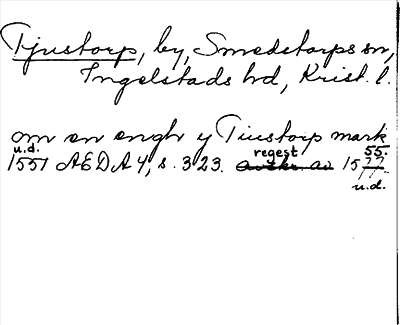 Tjustorp, by, Smedstorps sn,
Ingelstads hd, Krist. l.
om en engh y Tiustorp mark
u.d. regest 55.
1551 AEDA 4, s. 323. avskr. av 1577.
u.d.